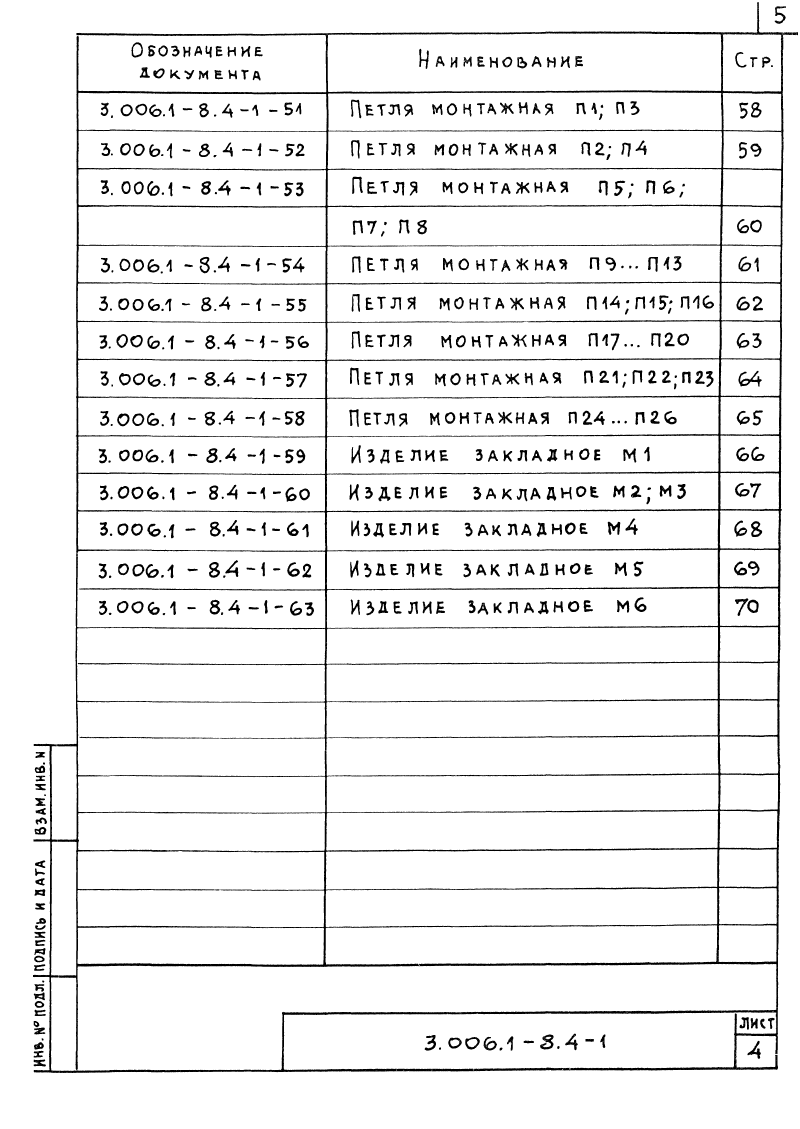 5
Обозначение документа Наименование Стр.
3.006.1-8.4-1-51 Петля монтажная П1; П3 58
3.006.1-8.4-1-52 Петля монтажная П2; П4 59
3.006.1-8.4-1-53 Петля монтажная П5; П6;
П7; П8 60
3.006.1-8.4-1-54 Петля монтажная П9...П13 61
3.006.1-8.4-1-55 Петля монтажная П14; П15; П16 62
3.006.1-8.4-1-56 Петля монтажная П17...П20 63
3.006.1-8.4-1-57 Петля монтажная П21; П22; П23 64
3.006.1-8.4-1-58 Петля монтажная П24...П26 65
3.006.1-8.4-1-59 Изделие закладное М1 66
3.006.1-8.4-1-60 Изделие закладное М2; М3 67
3.006.1-8.4-1-61 Изделие закладное М4 68
3.006.1-8.4-1-62 Изделие закладное М5 69
3.006.1-8.4-1-63 Изделие закладное М6 70
Взам. инв. N
Подпись и дата
Инв. № подл.
3.006.1-8.4-1
Лист
4